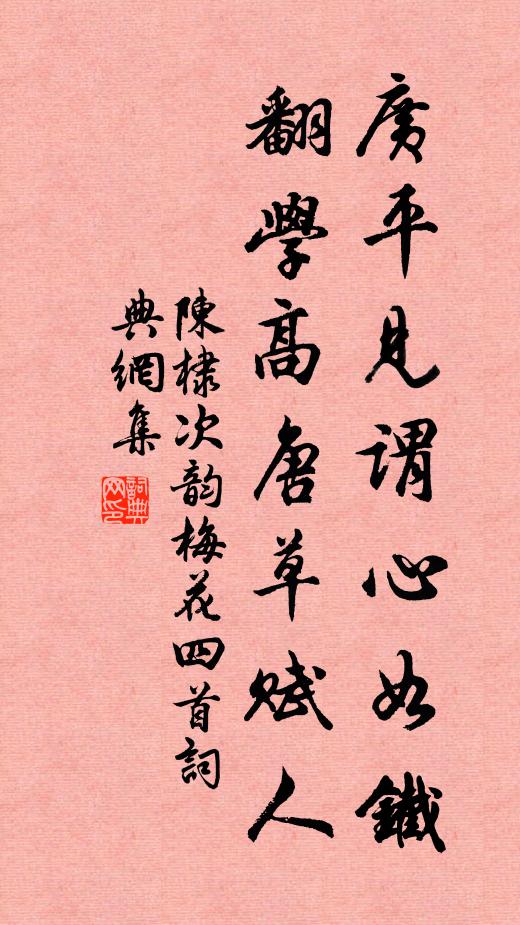 廣平見謂心如鐵
翻學高唐草賦人
陳棣次韵梅花四首詞
典網集
詞典
网印